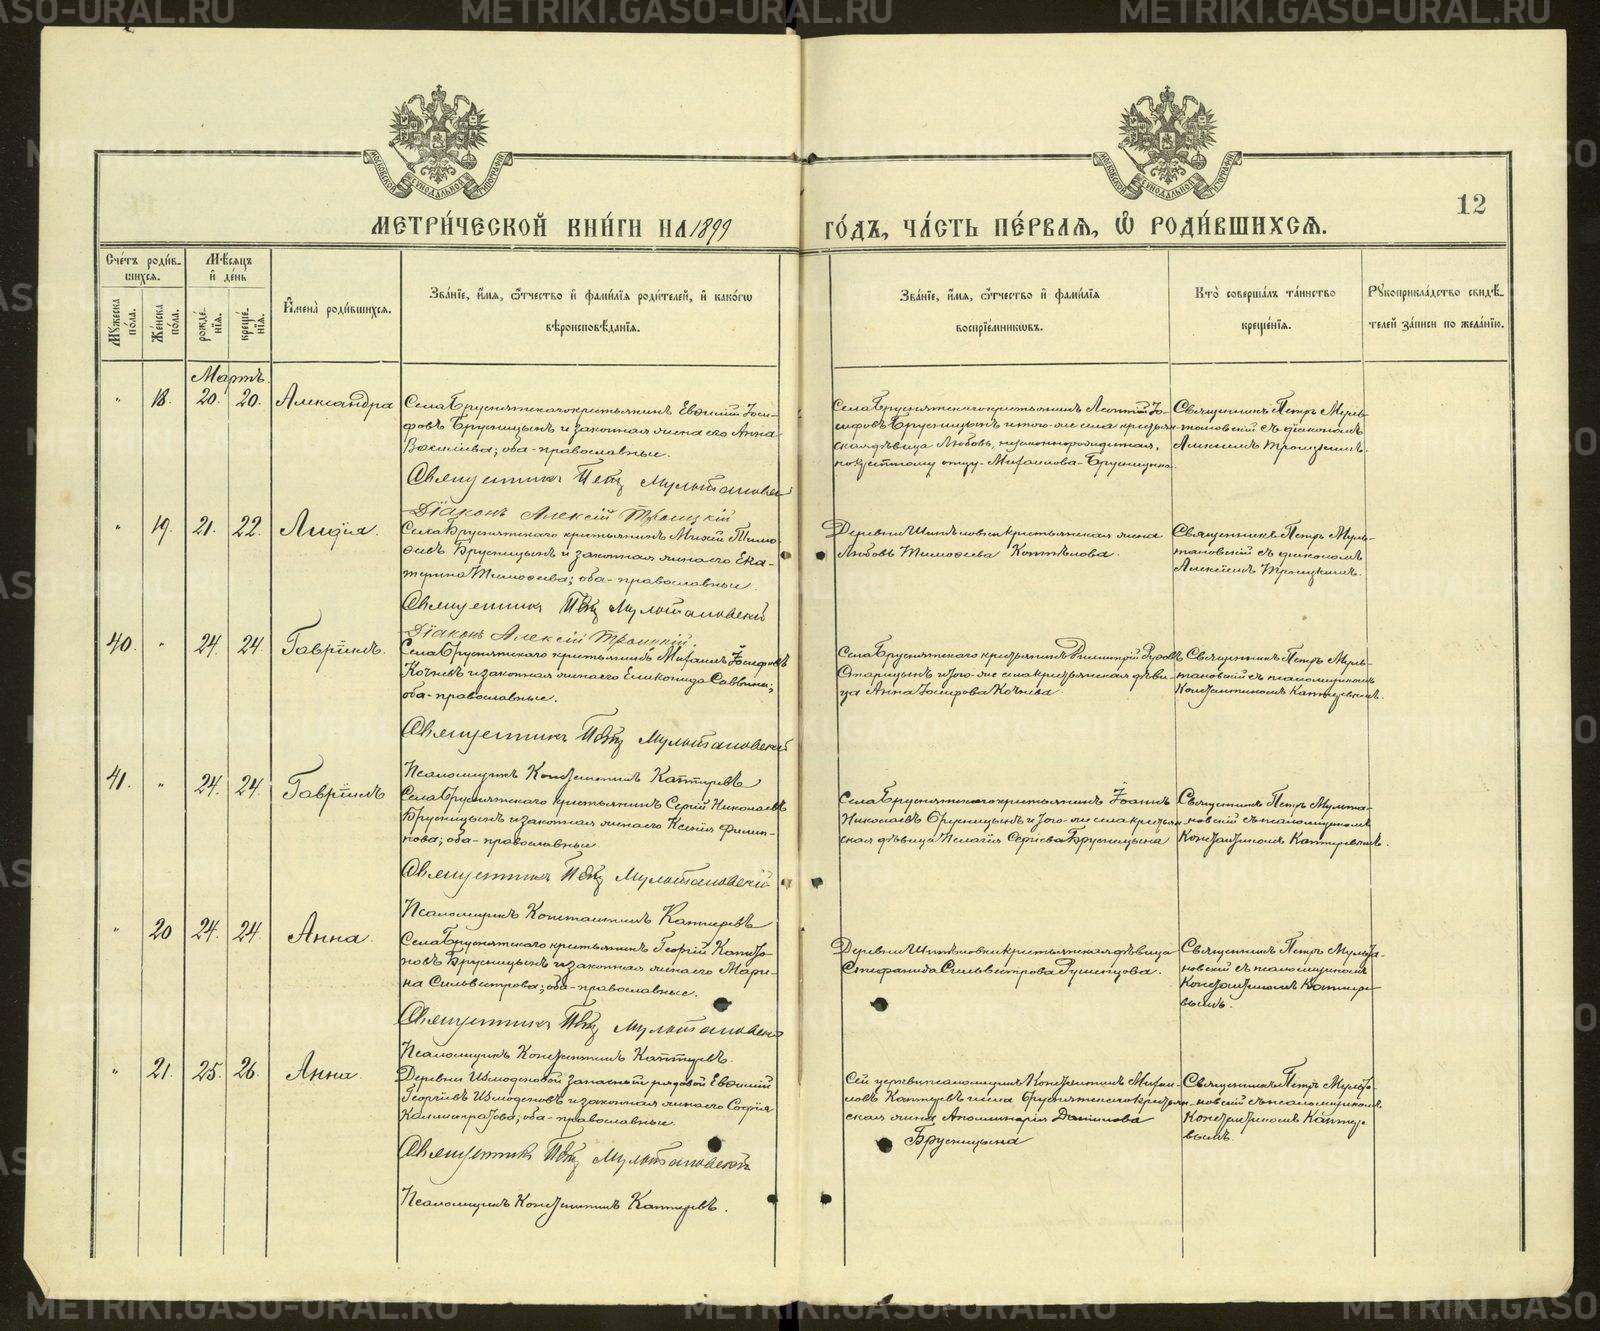 МЕТРИ́ЧЕСКОЙ КНИ́ГИ НА 1899
ГО́ДЪ, ЧА́СТЬ ПЕ́РВАЯ, Ѡ҆ РОДИ́ВШИХСЯ.
12
Сче́тъ роди́в-
шихся.
Мѣ́сяцъ
и҆ де́нь
Му́жеска по́ла.
Же́нска по́ла.
рожде́-
нїя.
креще́-
нїя.
И҆мена̀ роди́вшихся.
Зва́нїе, и҆́мя, ѻ҆́тчество и҆ фами́лїя роди́телей, и҆ како́гѡ
вѣроисповѣ́данїя.
Зва́нїе, и҆́мя, ѻ҆́тчество и҆ фами́лїя
воспрїе́мникѡвъ.
Кто̀ соверша́лъ та́инство
креще́нїя.
Рꙋкоприкла́дство свидѣ́-
телей за́писи по жела́нїю.
Мартъ.
" 18. 20. 20. Александра
Села Бруснятскаго крестьянинъ Евѳимій Іоси-
фовъ Брусницынъ и законная жена его Анна
Васильева; оба-православные.
Священникъ Петръ Мультановскій
Діаконъ Алексій Троицкій
Села Бруснятскаго крестьянинъ Леонтій Іо-
сифовъ Брусницынъ и того-же села крестьян-
ская дѣвица Любовь, незаконнорожденная,
по крестному отцу-Михаилова-Брусницына.
Священникъ Петръ Муль-
тановскій съ діакономъ
Алексіемъ Троицкимъ.
" 19. 21. 22. Лидія.
Села Бруснятскаго крестьянинъ Михей Тимо-
ѳеевъ Брусницынъ и законная жена его Ека-
терина Тимоѳеева; оба-православные.
Священникъ Петръ Мультановскій
Діаконъ Алексій Троицкій.
крестьянская жена
Любовь Тимоѳеева
Священникъ Петръ Муль-
тановскій съ діакономъ
Алексіемъ Троицкимъ.
40. " 24. 24. Гавріилъ.
Села Бруснятскаго крестьянинъ Михаилъ Іосифовъ
Кочневъ и законная жена его Еликонида Саввина;
оба-православные.
Священникъ Петръ Мультановскій
Псаломщикъ Константинъ Каптеревъ
Села Бруснятскаго крестьянинъ Димитрій
Старицынъ и того-же села крестьянская дѣви-
ца Анна Іосифова Кочнева.
Священникъ Петръ Муль-
тановскій съ псаломщикомъ
Константиномъ Каптеревымъ.
41. " 24. 24. Гавріилъ
Села Бруснятскаго крестьянинъ Сергій Николаевъ
Брусницынъ и законная жена его Ксенія Филип-
пова; оба-православные.
Священникъ Петръ Мультановскій
Псаломщикъ Константинъ Каптеревъ
Села Бруснятскаго крестьянинъ Іоаннъ
Николаевъ Брусницынъ и того-же села крестьян-
ская дѣвица Пелагія Сергіева Брусницына
Священникъ Петръ Мульта-
новскій съ псаломщикомъ
Константиномъ Каптеревымъ.
" 20 24. 24. Анна.
Села Бруснятскаго крестьянинъ Георгій
Брусницынъ и законная жена его Мари-
на Сильвестрова; оба-православные.
Священникъ Петръ Мультановскій
Псаломщикъ Константинъ Каптеревъ.
крестьянская дѣвица
Стефанида Сильвестрова
Священникъ Петръ Мульта-
новскій съ псаломщикомъ
Константиномъ Каптере-
вымъ.
" 21. 25. 26. Анна.
Деревни Измоденовой запасный рядовой Евѳимій
Георгіевъ Измоденовъ и законная жена его Софія
Каллистратова; оба-православные.
Священникъ Петръ Мультановскій
Псаломщикъ Константинъ Каптеревъ.
Сей церкви псаломщикъ Константинъ Михаи-
ловъ Каптеревъ и села Бруснятскаго крестьян-
ская жена Аполлинарія Данилова
Брусницына
Священникъ Петръ Мульта-
новскій съ псаломщикомъ
Константиномъ Каптере-
вымъ.
METRIKI.GASO-URAL.RU